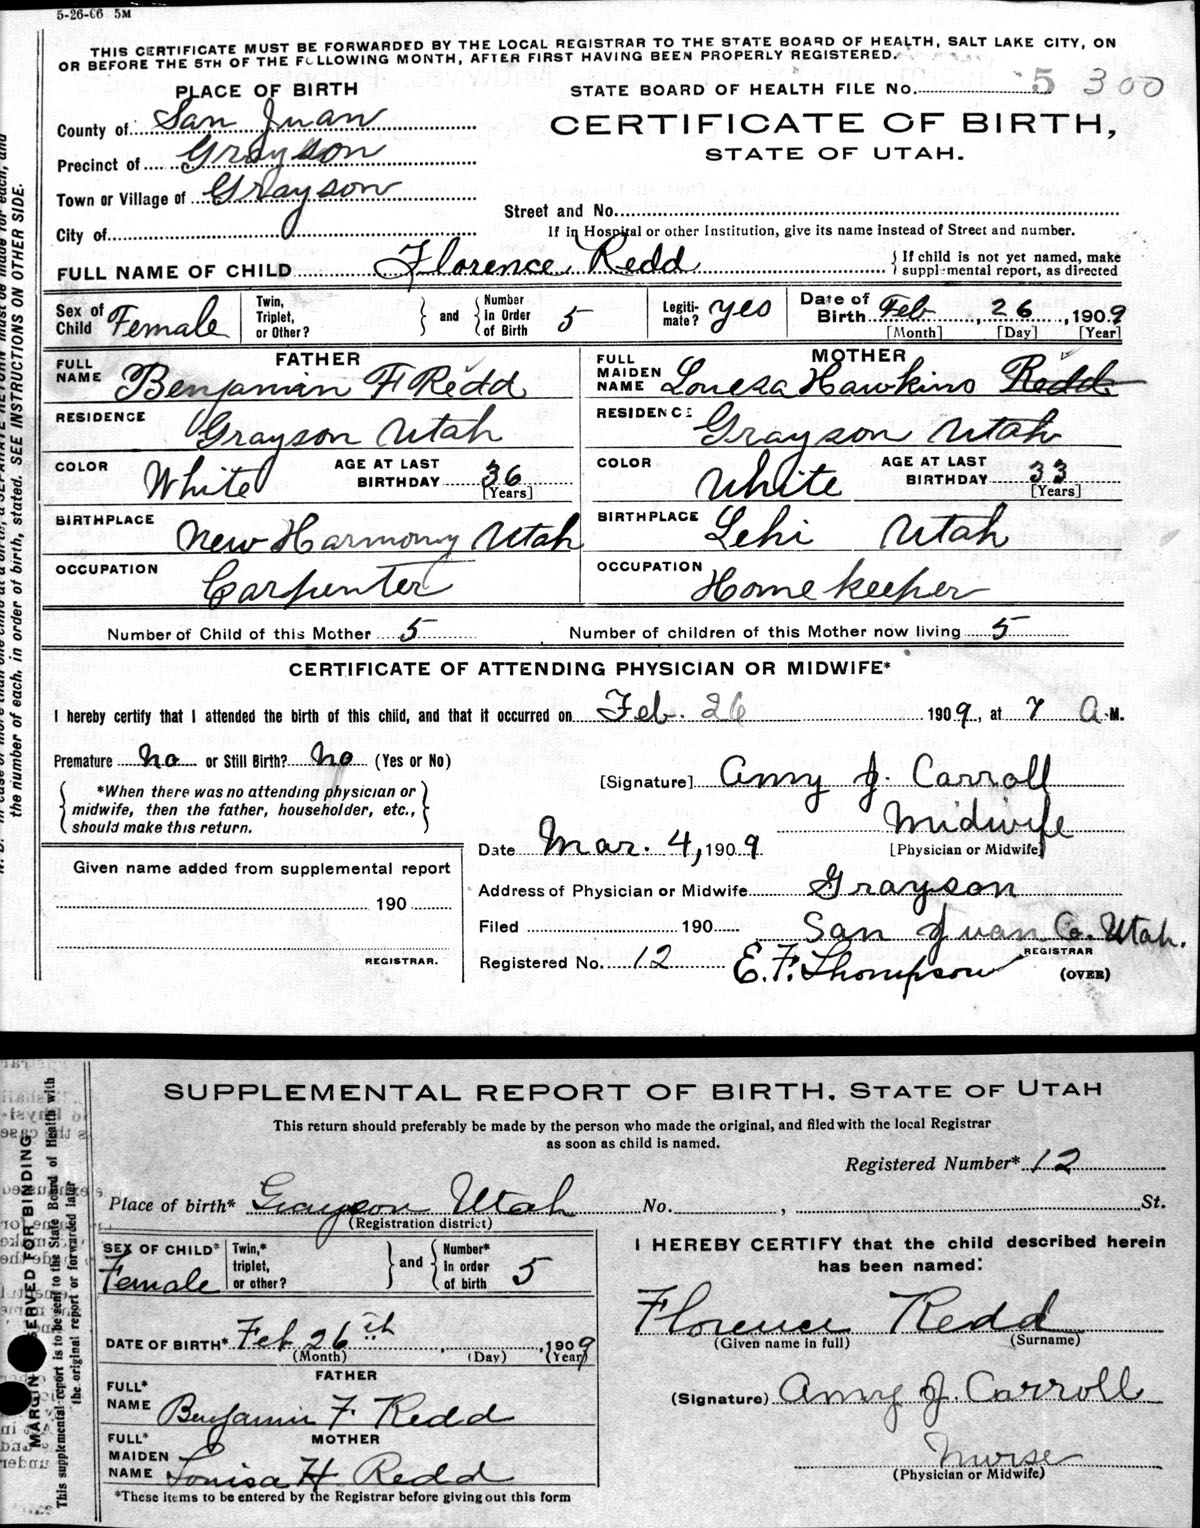 5-26-06 5M
THIS CERTIFICATE MUST BE FORWARDED BY THE LOCAL REGISTRAR TO THE STATE BOARD OF HEALTH, SALT LAKE CITY, ON
OR BEFORE THE 5TH OF THE FOLLOWING MONTH, AFTER FIRST HAVING BEEN PROPERLY REGISTERED.
PLACE OF BIRTH
STATE BOARD OF HEALTH FILE No. 5 300
County of San Juan
CERTIFICATE OF BIRTH,
Precinct of Grayson
STATE OF UTAH.
Town or Village of Grayson
Street and No.
City of
If in Hospital or other Institution, give its name instead of Street and number.
FULL NAME OF CHILD Florence Redd
If child is not yet named, make
supplemental report, as directed
Sex of Child Female
Twin, Triplet, or Other?
and
Number In Order of Birth 5
Legitimate? yes
Date of Birth Feb, 26, 1909
[Month] [Day] [Year]
FATHER
FULL NAME Benjamin F Redd
RESIDENCE Grayson Utah
COLOR White
AGE AT LAST BIRTHDAY 36
[Years]
BIRTHPLACE New Harmony Utah
OCCUPATION Carpenter
MOTHER
FULL MAIDEN NAME Louesa Hawkins Redd
RESIDENCE Grayson Utah
COLOR White
AGE AT LAST BIRTHDAY 33
[Years]
BIRTHPLACE Lehi Utah
OCCUPATION Home keeper
Number of Child of this Mother 5
Number of children of this Mother now living 5
CERTIFICATE OF ATTENDING PHYSICIAN OR MIDWIFE*
I hereby certify that I attended the birth of this child, and that it occurred on Feb. 26 1909, at 7 A.M.
Premature No or Still Birth? No (Yes or No)
*When there was no attending physician or
midwife, then the father, householder, etc.,
should make this return.
[Signature] Amy J. Carroll
Midwife
[Physician or Midwife]
Date Mar. 4, 1909
Given name added from supplemental report
190
REGISTRAR.
Address of Physician or Midwife Grayson
Filed 190
San Juan Co. Utah.
Registered No. 12
E. F. Thompson
REGISTRAR
(OVER)
the number of each, in order of birth, stated. SEE INSTRUCTIONS ON OTHER SIDE.
SUPPLEMENTAL REPORT OF BIRTH, STATE OF UTAH
This return should preferably be made by the person who made the original, and filed with the local Registrar
as soon as child is named.
Registered Number* 12
Place of birth* Grayson Utah No. , St.
(Registration district)
SEX OF CHILD* Female
Twin,* triplet, or other?
and
Number* in order of birth 5
DATE OF BIRTH* Feb 26th, 1909
(Month) (Day) (Year)
FATHER
FULL* NAME Benjamin F Redd
MOTHER
FULL* MAIDEN NAME Louisa H Redd
*These items to be entered by the Registrar before giving out this form
I HEREBY CERTIFY that the child described herein
has been named:
Florence Redd
(Given name in full) (Surname)
(Signature) Amy J. Carroll
Nurse
(Physician or Midwife)
MARGIN RESERVED FOR BINDING
This supplemental report is to be sent to the State Board of Health with
the original report or forwarded later